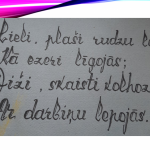 Lieli, plaši rudzu la
Kā ezeri līgojās;
Diži, skaisti kolhoz
Ar darbiņu lepojās.